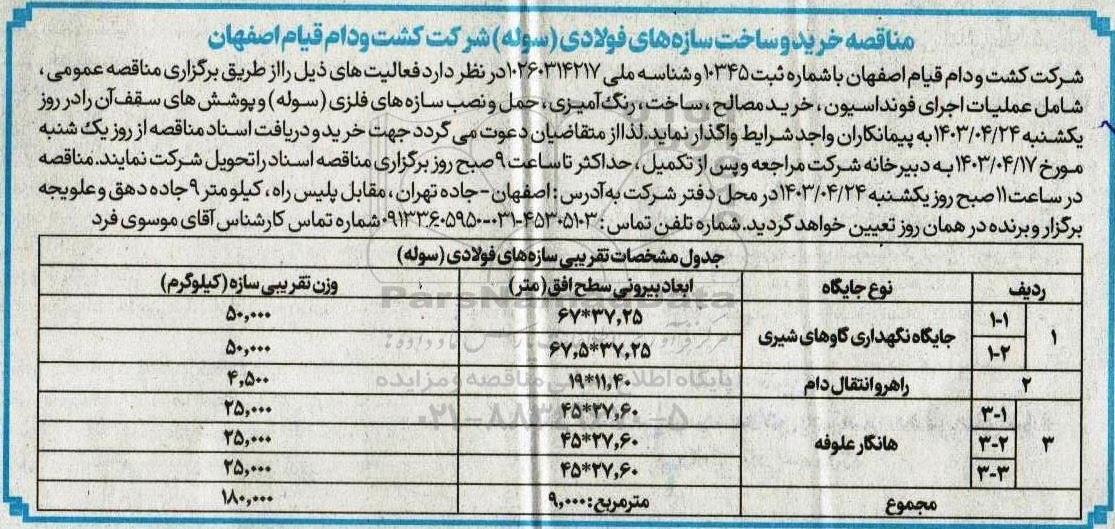 مناقصه خرید و ساخت سازه‌های فولادی (سوله) شرکت کشت و دام قیام اصفهان
شرکت کشت و دام قیام اصفهان با شماره ثبت ۱۰۳۴۵ و شناسه ملی ۱۰۲۶۰۳۱۴۲۱۷ در نظر دارد فعالیت های ذیل را از طریق برگزاری مناقصه عمومی،
شامل عملیات اجرای فونداسیون، خرید مصالح، ساخت، رنگ‌آمیزی، حمل و نصب سازه های فلزی (سوله) و پوشش های سقف آن را در روز
یکشنبه ۱۴۰۳/۰۴/۲۴ به پیمانکاران واجد شرایط واگذار نماید. لذا از متقاضیان دعوت می گردد جهت خرید و دریافت اسناد مناقصه از روز یک شنبه
مورخ ۱۴۰۳/۰۴/۱۷ به دبیرخانه شرکت مراجعه و پس از تکمیل، حداکثر تا ساعت ۹ صبح روز برگزاری مناقصه اسناد را تحویل شرکت نمایند. مناقصه
در ساعت ۱۱ صبح روز یکشنبه ۱۴۰۳/۰۴/۲۴ در محل دفتر شرکت به آدرس: اصفهان - جاده تهران، مقابل پلیس راه، کیلومتر ۹ جاده دهق و علویجه
برگزار و برنده در همان روز تعیین خواهد گردید. شماره تلفن تماس: ۰۳۱-۴۵۳۰۵۱۰۳-۰۹۱۳۳۶۰۵۹۵۰ شماره تماس کارشناس آقای موسوی فرد
جدول مشخصات تقریبی سازه‌های فولادی (سوله)
ردیف نوع جایگاه ابعاد بیرونی سطح افق (متر) وزن تقریبی سازه (کیلوگرم)
۱ ۱-۱ جایگاه نگهداری گاوهای شیری ۶۷*۳۷,۲۵ ۵۰,۰۰۰
۱-۲ ۶۷,۵*۳۷,۲۵ ۵۰,۰۰۰
۲ راهرو انتقال دام ۱۹*۱۱,۴۰ ۴,۵۰۰
۳ ۳-۱ هانگار علوفه ۴۵*۲۷,۶۰ ۲۵,۰۰۰
۳-۲ ۴۵*۲۷,۶۰ ۲۵,۰۰۰
۳-۳ ۴۵*۲۷,۶۰ ۲۵,۰۰۰
مجموع مترمربع: ۹,۰۰۰ ۱۸۰,۰۰۰
ParsNamadData
پایگاه اطلاع رسانی مناقصه و مزایده